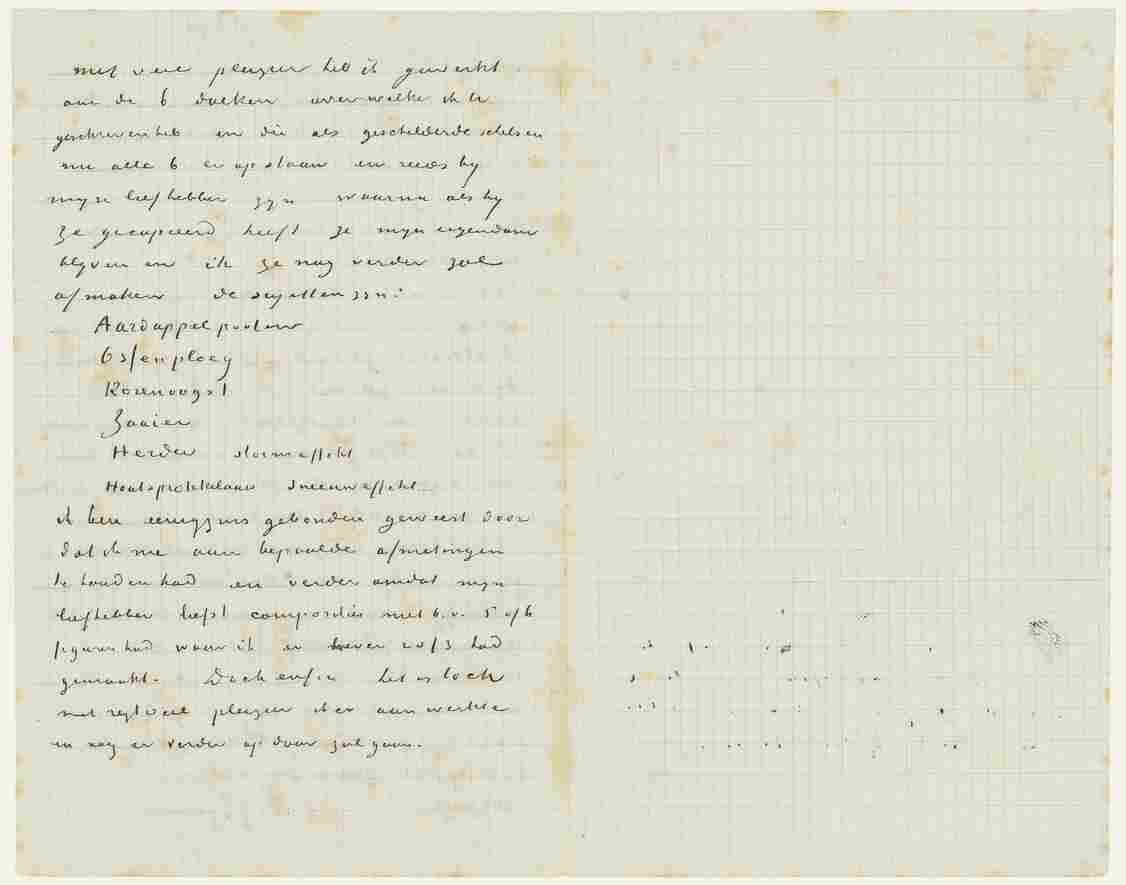 met veel pleizier heb ik gewerkt
aan de 6 doeken over welke ik U
geschreven heb en die als geschilderde schetsen
nu alle 6 er op staan en reeds bij
mijn liefhebber zijn waarna als hij
ze gecopieerd heeft ze mijn eigendom
blijven en ik ze nog verder zal
afmaken de sujetten zijn:
Aardappelpooten
Ossenploeg
Korenoogst
Zaaier
Herder stormeffekt
Houtsprokkelaars sneeuweffekt
ik ben eenigzins gebonden geweest door
dat ik me aan bepaalde afmetingen
te houden had en verder omdat mijn
liefhebber liefst composities met b.v. 5 of 6
figuren had waar ik er liever 2 of 3 had
gemaakt. Doch enfin het is toch
met regt veel pleizier ik er aan werkte
en nog er verder op door zal gaan.